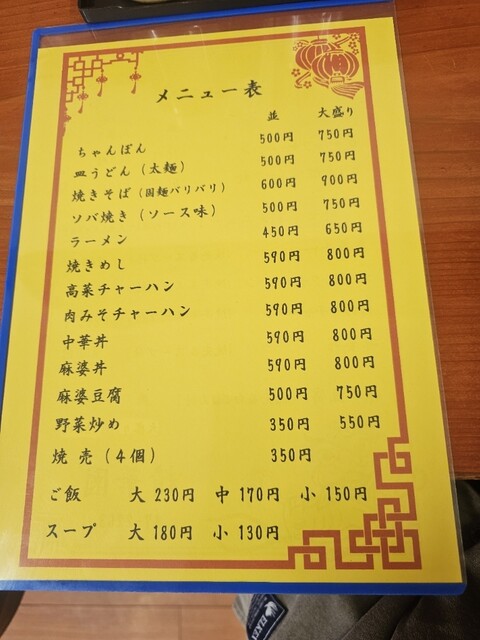 メニュー表
並 大盛り
ちゃんぽん 500円 750円
皿うどん（太麺） 500円 750円
焼きそば（固麺パリパリ） 600円 900円
ソバ焼き（ソース味） 500円 750円
ラーメン 450円 650円
焼きめし 590円 800円
高菜チャーハン 590円 800円
肉みそチャーハン 590円 800円
中華丼 590円 800円
麻婆丼 590円 800円
麻婆豆腐 500円 750円
野菜炒め 350円 550円
焼売（4個） 350円
ご飯 大 230円 中 170円 小 150円
スープ 大 180円 小 130円